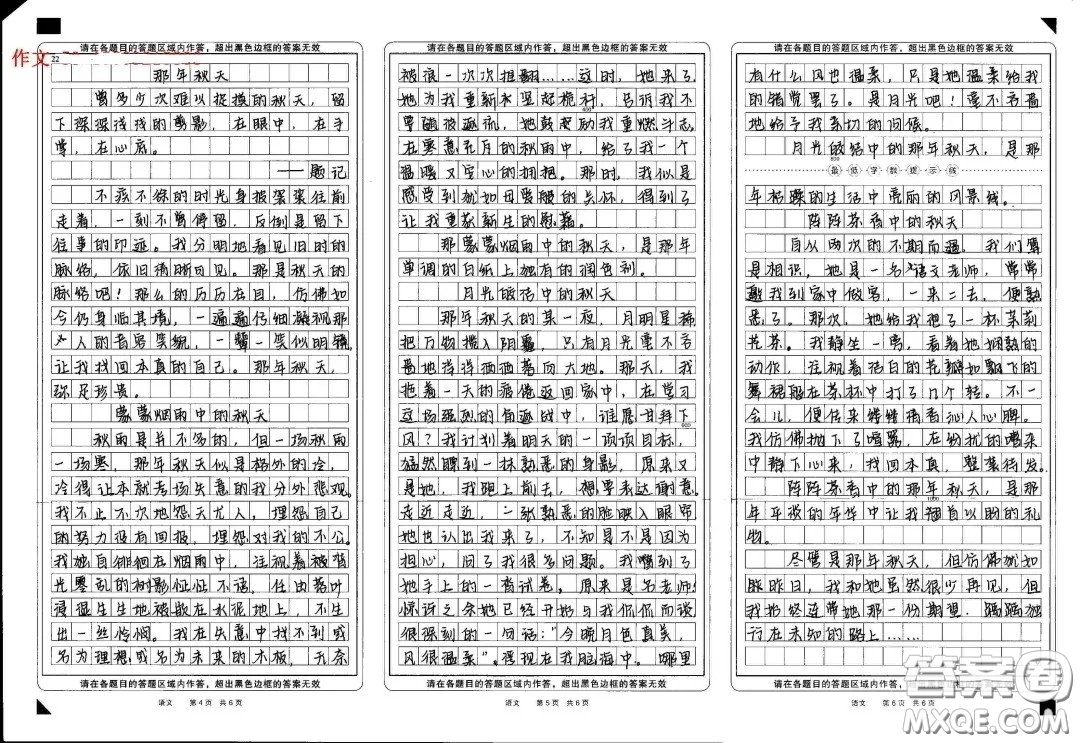 请在各题目的答题区域内作答，超出黑色边框的答案无效
作文
22
那年秋天
曾多少次难以捉摸的秋天，留
下深深浅浅的剪影，在眼中，在手
掌，在心底。
——题记
不疾不徐的时光身披袈裟往前
走着，一刻不曾停留，反倒是留下
往事的印迹。我分明地看见旧时的
脉络，依旧清晰可见。那是秋天的
脉络吧！那么的历历在目，仿佛如
今仍身临其境，一遍遍仔细凝视那
个人的音容笑貌，一颦一笑似明镜
让我找回本真的自己。那年秋天，
弥足珍贵。
蒙蒙烟雨中的秋天
秋雨是并不多的，但一场秋雨
一场寒，那年秋天似是格外的冷，
冷得让本就考场失意的我分外悲观。
我不止一次地怨天尤人，埋怨自己
的努力没有回报，埋怨对我的不公。
我独自徘徊在烟雨中，注视着被昏
光零乱的树影怔怔不语，任由落叶
漫生生地被嵌在水泥地上，不生
出一丝怜悯。我在失意中找不到或
名为理想或名为未来的木板，无奈
请在各题目的答题区域内作答，超出黑色边框的答案无效
语文 第4页 共6页
请在各题目的答题区域内作答，超出黑色边框的答案无效
被浪一次次推翻……这时，她来了
她为我重新竖起桅杆，告诉我不
要随波逐流，她鼓励我重燃斗志，
在寒意充斥的秋雨中，给了我一个
温暖又安心的拥抱。那时，我似是
感受到犹如母爱般的关怀，得到了
让我重获新生的慰藉。
那蒙蒙烟雨中的秋天，是那年
单调的白纸上独有的润色剂。
月光皎洁中的秋天
那年秋天的某一夜，月明星稀
把万物揽入阴霾，只有月光毫不吝
啬地洋洋洒洒落向大地。那天，我
拖着一天的疲倦返回家中，在学习
这场强烈的角逐战中，谁愿甘拜下
600
风？我计划着明天的一项项目标，
猛然瞥到一抹熟悉的身影，原来又
是她，我跑上前去，想要表达谢意。
走近走近，一张熟悉的脸映入眼帘
她也认出我来了，不知是不是因为
担心，问了我很多问题。我瞄到了
她手上的一沓试卷。原来是名老师！
惊讶之余她已经开始与我侃侃而谈
很深刻的一句话：“今晚月色真美，
风很温柔”。浮现在我脑海中。哪里
请在各题目的答题区域内作答，超出黑色边框的答案无效
语文 第5页 共6页
请在各题目的答题区域内作答，超出黑色边框的答案无效
有什么风也温柔，只是她温柔给我
的错觉罢了。是月光吧！毫不吝啬
地给予我亲切的问候。
月光皎洁中的那年秋天，是那
800
最低字数提示线
年枯燥的生活中亮丽的风景线。
阵阵茶香中的秋天
自从两次的不期而遇，我们算
是相识，她是一名语文老师，常常
邀我到家中做客，一来二去，便熟
悉了。那次，她给我抱了一杯茉莉
花茶。我静坐一离，看着她娴熟的
动作，注视着洁白的花瓣如飘飞的
舞裙般在茶杯中打了几个转。不一
会儿，便传来缕缕清香沁人心脾。
我仿佛抛下了喧嚣，在纷扰的嘈杂
中静下心来，找回本真，整装待发。
阵阵茶香中的那年秋天，是那
1000
年平淡的年华中让我翘首以盼的礼
物。
尽管是那年秋天，但仿佛犹如
昨昨日，我和她虽然很少再见，但
我始终连带她那一份期望，踽踽独
行在未知的路上……
请在各题目的答题区域内作答，超出黑色边框的答案无效
语文 第6页 共6页
答案卷
MXQE.COM